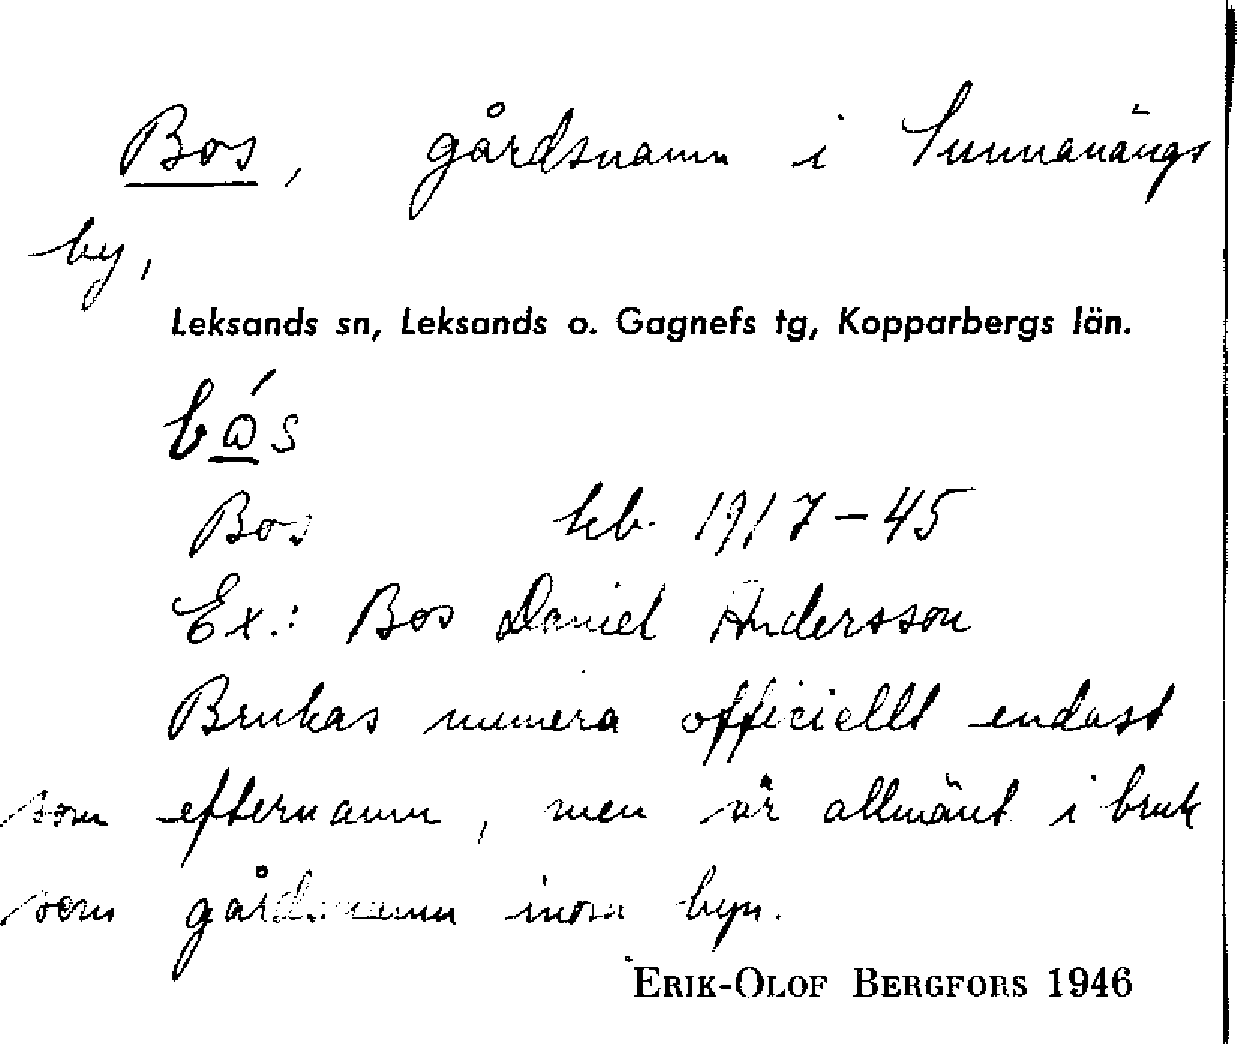 Bos, gårdsnamn i Sunnanängs
by,
Leksands sn, Leksands o. Gagnefs tg, Kopparbergs län.
bώs
Bos kb. 1917-45
Ex.: Bos Daniel Andersson
Brukas numera officiellt endast
som efternamn, men är allmänt i bruk
som gårdsnamn inom byn.
ERIK-OLOF BERGFORS 1946